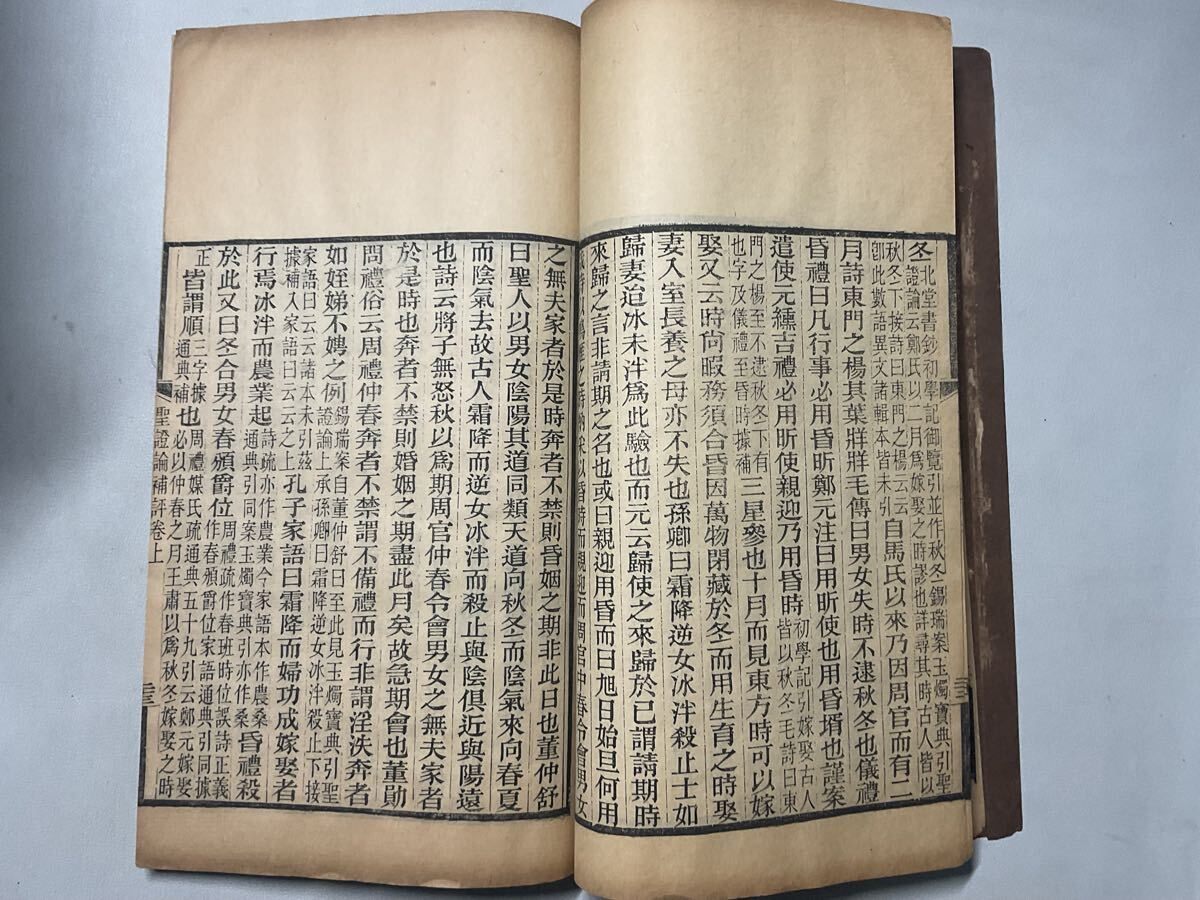 冬北堂書鈔初學記御覽引並作秋冬錫瑞案玉燭寶典引聖
證論云鄭氏以二月爲嫁娶之時謬也詳尋其時古人皆以
秋冬下接詩曰東門之楊云云
卽此數語異文諸輯本皆未引自馬氏以來乃因周官而有二
月詩東門之楊其葉牂牂毛傳曰男女失時不逮秋冬也儀禮
昏禮曰凡行事必用昏昕鄭元注曰用昕使也用昏壻也謹案
遣使元纁吉禮必用昕使親迎乃用昏時初學記引嫁娶古人
皆以秋冬毛詩曰東
門之楊至不逮秋冬下有
也字及儀禮至昏時據補三星參也十月而見東方時可以嫁
娶又云時尙暇務須合昏因萬物閉藏於冬而用生育之時娶
妻入室長養之母亦不失也孫卿曰霜降逆女冰泮殺止士如
歸妻迨冰未泮爲此驗也而元云歸使之來歸於已謂請期時
來歸之言非請期之名也或曰親迎用昏而曰旭日始旦何用
之時納采以昏時而親迎而周官仲春令會男女
之無夫家者於是時奔者不禁則昏姻之期非此日也董仲舒
曰聖人以男女陰陽其道同類天道向秋冬而陰氣來向春夏
而陰氣去故古人霜降而逆女冰泮而殺止與陰俱近與陽遠
也詩云將子無怒秋以爲期周官仲春令會男女之無夫家者
於是時也奔者不禁則婚姻之期盡此月矣故急期會也董勛
問禮俗云周禮仲春奔者不禁謂不備禮而行非謂淫泆奔者
如姪娣不娉之例錫瑞案自董仲舒曰至此見玉燭寶典引聖
證論上承孫卿曰霜降逆女冰泮殺止下接
家語曰云云諸本未引茲
據補入家語曰云云之上孔子家語曰霜降而婦功成嫁娶者
行焉冰泮而農業起詩疏亦作農業今家語本作農桑
通典引同案玉燭寶典引亦作桑昏禮殺
於此又曰冬合男女春頒爵位周禮疏作春班時位誤詩正義
作春頒爵位家語通典引同據
正皆謂順三字據
通典補也周禮媒氏疏通典五十九引云鄭元嫁娶
必以仲春之月王肅以爲秋冬嫁娶之時
聖證論補評卷上